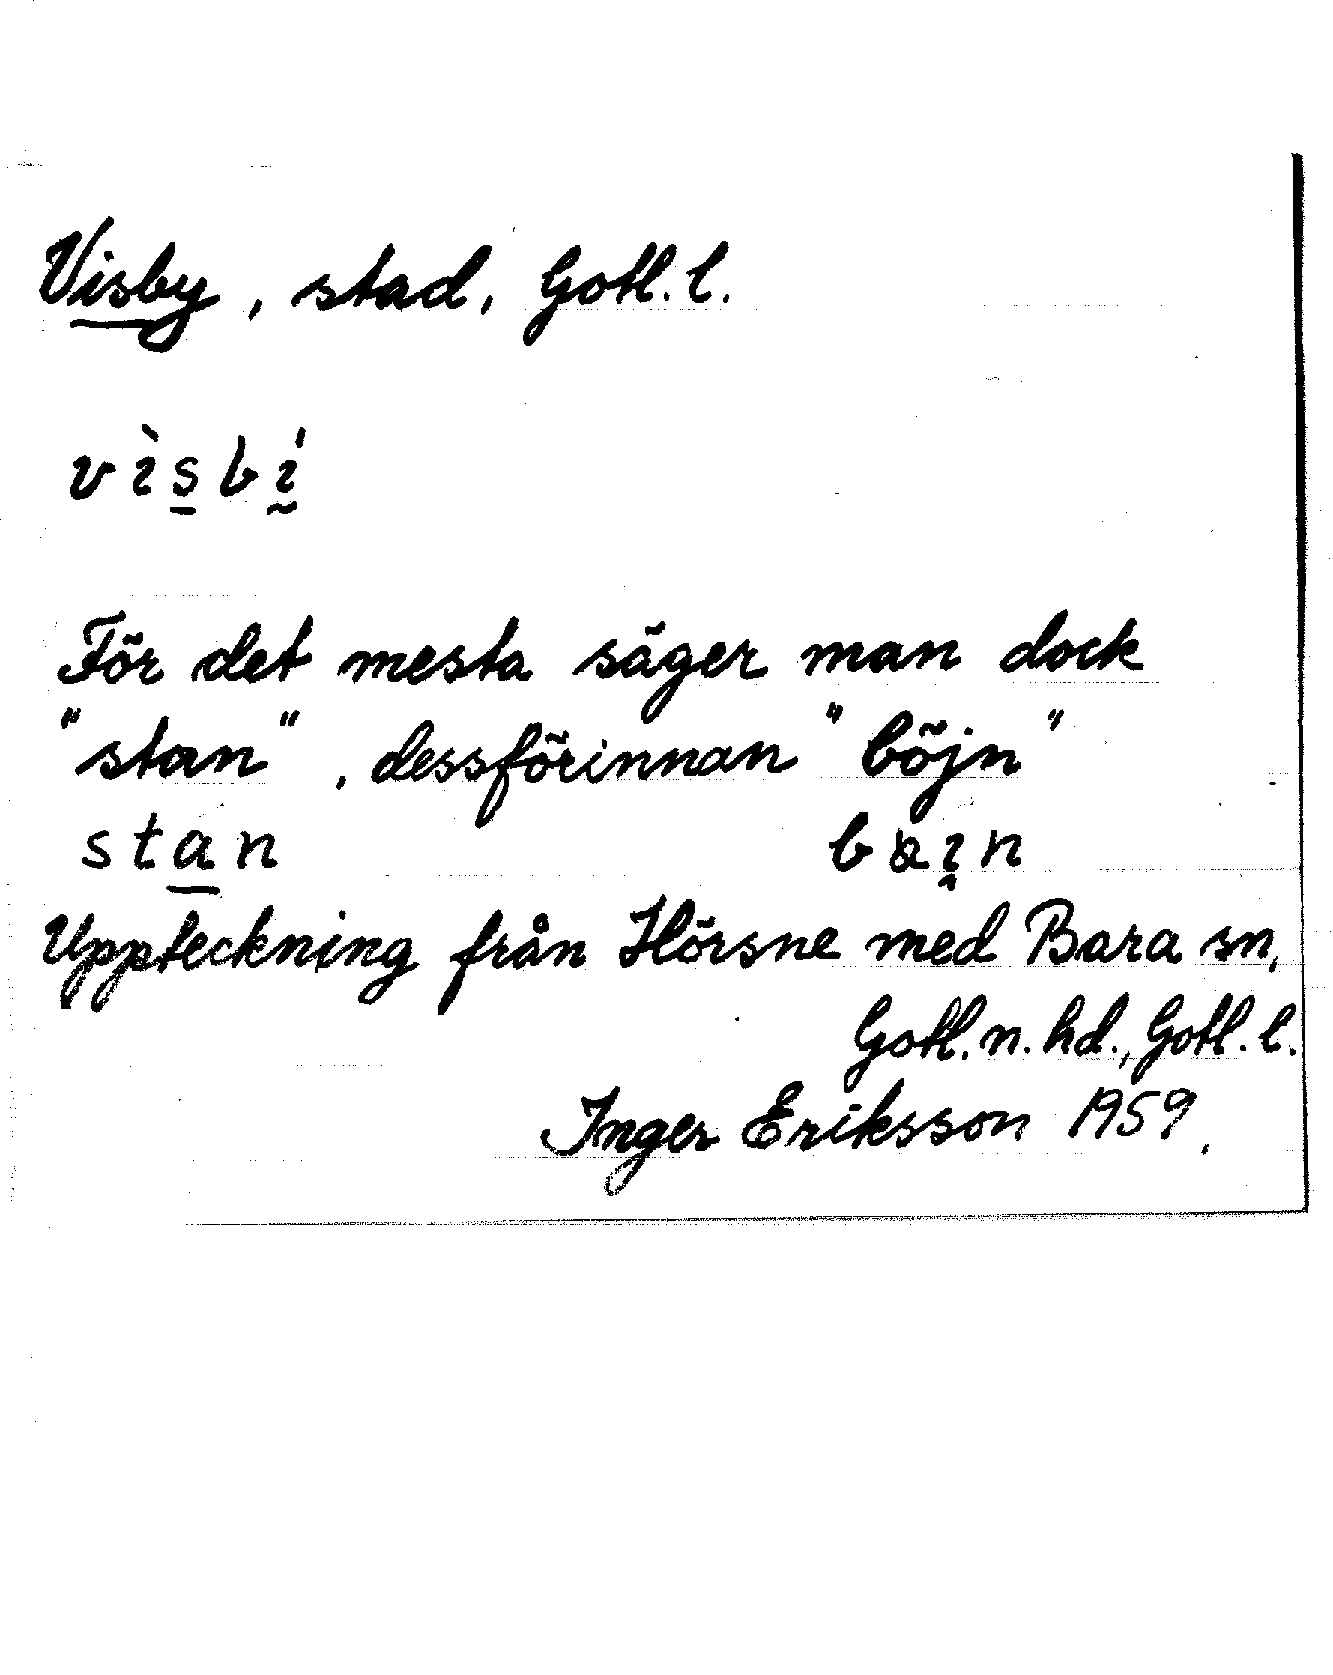 Visby, stad, Gotl. l.
vìs̲bḭ́
För det mesta säger man dock
"stan", dessförinnan "böjn"
sta̲n bain
Uppteckning från Hörsne med Bara sn,
Gotl. n. hd., Gotl. l.
Inger Eriksson 1959.